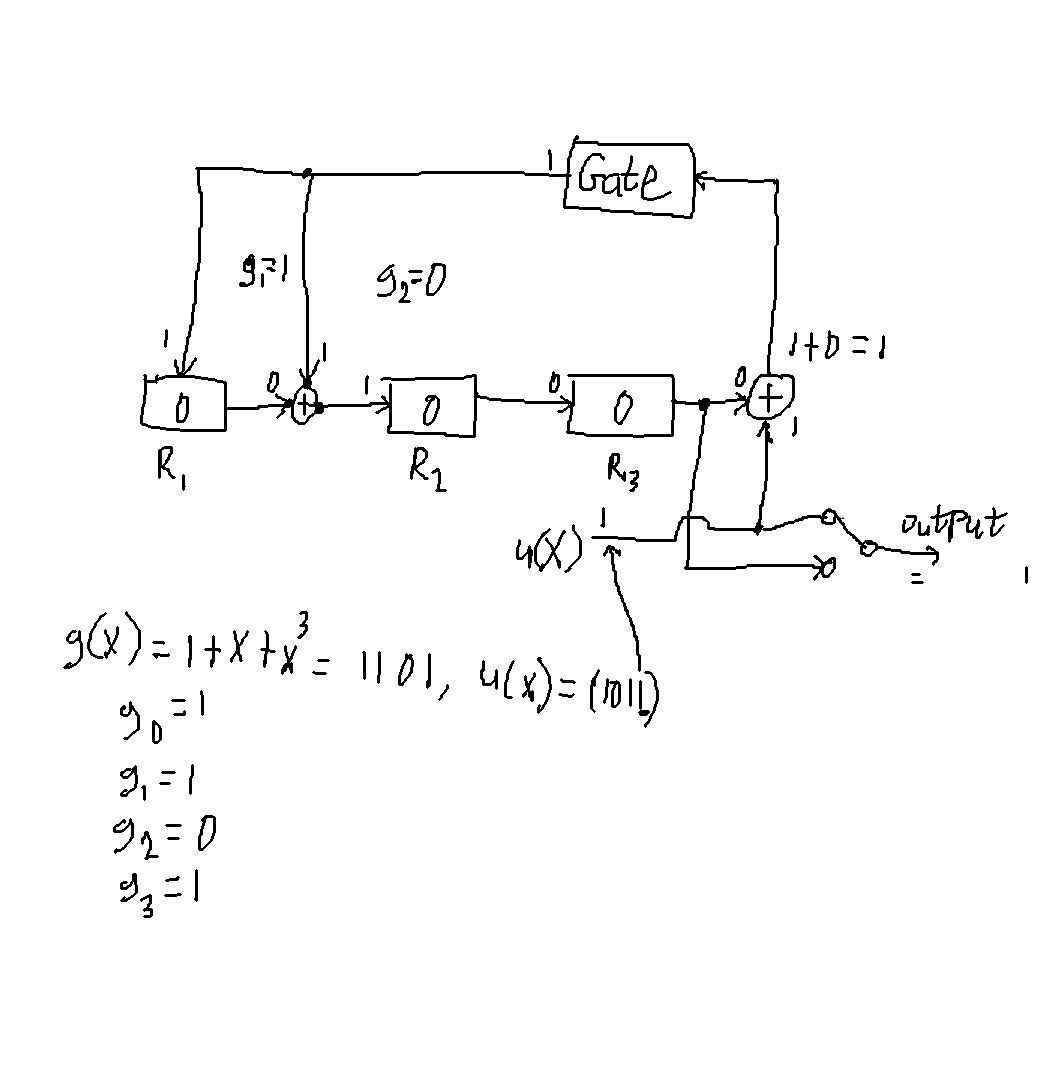 1
Gate
g₁=1
g₂=0
1+0=1
1
1
0
1
0
0
1
0
0
0
1
R₁
R₂
R₃
1
u(X)
output
=
1
g(X)=1+X+X³=1101, u(X)=(1011)
g₀=1
g₁=1
g₂=0
g₃=1